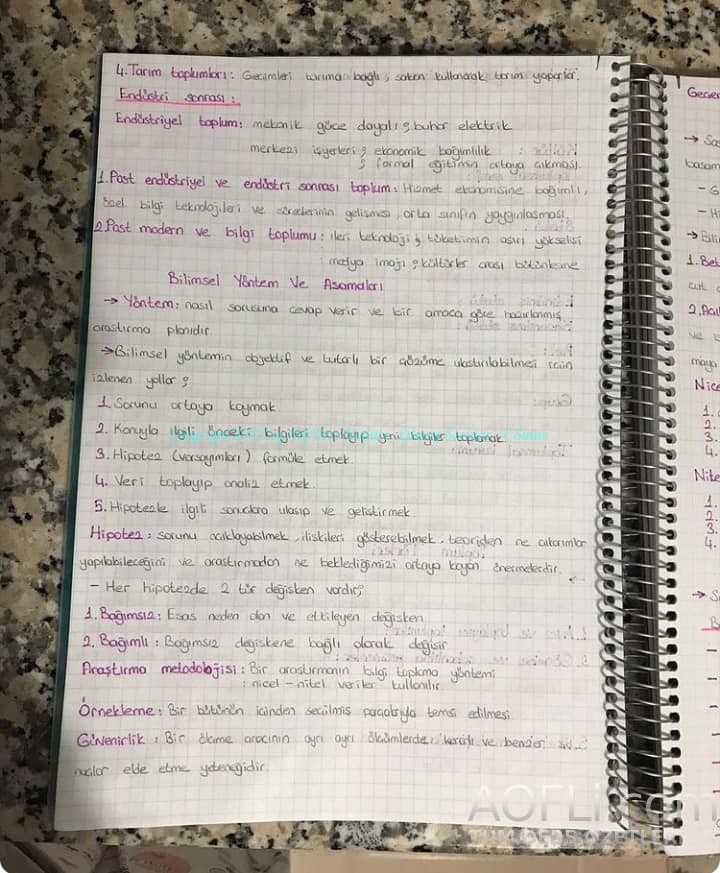 4. Tarım toplumları: Geçimleri tarıma bağlı; saban kullanarak tarım yaparlar.
Endüstri sonrası:
Endüstriyel toplum: mekanik güce dayalı; buhar elektrik
merkezi işyerleri; ekonomik bağımlılık
; formal eğitimin ortaya çıkması.
1. Post endüstriyel ve endüstri sonrası toplum: Hizmet ekonomisine bağımlı,
özel bilgi teknolojileri ve süreçlerinin gelişmesi, orta sınıfın yaygınlaşması.
2. Post modern ve bilgi toplumu: ileri teknoloji; tüketimin aşırı yükselişi
: medya imajı; kültürler arası bütünleşme
Bilimsel Yöntem Ve Aşamaları
→ Yöntem: nasıl sorusuna cevap verir ve bir amaca göre hazırlanmış
araştırma planıdır.
→ Bilimsel yöntemin objektif ve tutarlı bir çözüme ulaştırılabilmesi için
izlenen yollar;
1. Sorunu ortaya koymak.
2. Konuyla ilgili önceki bilgileri toplayıp yeni bilgiler toplamak
3. Hipotez (varsayımları) formüle etmek.
4. Veri toplayıp analiz etmek.
5. Hipotezle ilgili sonuçlara ulaşıp ve geliştirmek.
Hipotez: sorunu açıklayabilmek, ilişkileri gösterebilmek, teoriden ne çıkarımlar
yapılabileceğini ve araştırmadan ne beklediğimizi ortaya koyan önermelerdir.
- Her hipotezde 2 tür değişken vardır;
1. Bağımsız: Esas neden olan ve etkileyen değişken
2. Bağımlı: Bağımsız değişkene bağlı olarak değişir
Araştırma metodolojisi: Bir araştırmanın bilgi toplama yöntemi
: nicel - nitel veriler kullanılır.
Örnekleme: Bir bütünün içinden seçilmiş parçalarıyla temsil edilmesi
Güvenirlik: Bir ölçme aracının ayrı ayrı ölçümlerde kararlı ve benzer
nuçlar elde etme yeteneğidir.
Gene
→
- G
- H
→ Bili
1. Bel
2. Açı
ve
maya
Nice
1.
2.
3.
4.
Nite
1.
2.
3.
4.
→
AOFLi.com
TÜM DERS ÖZETLE